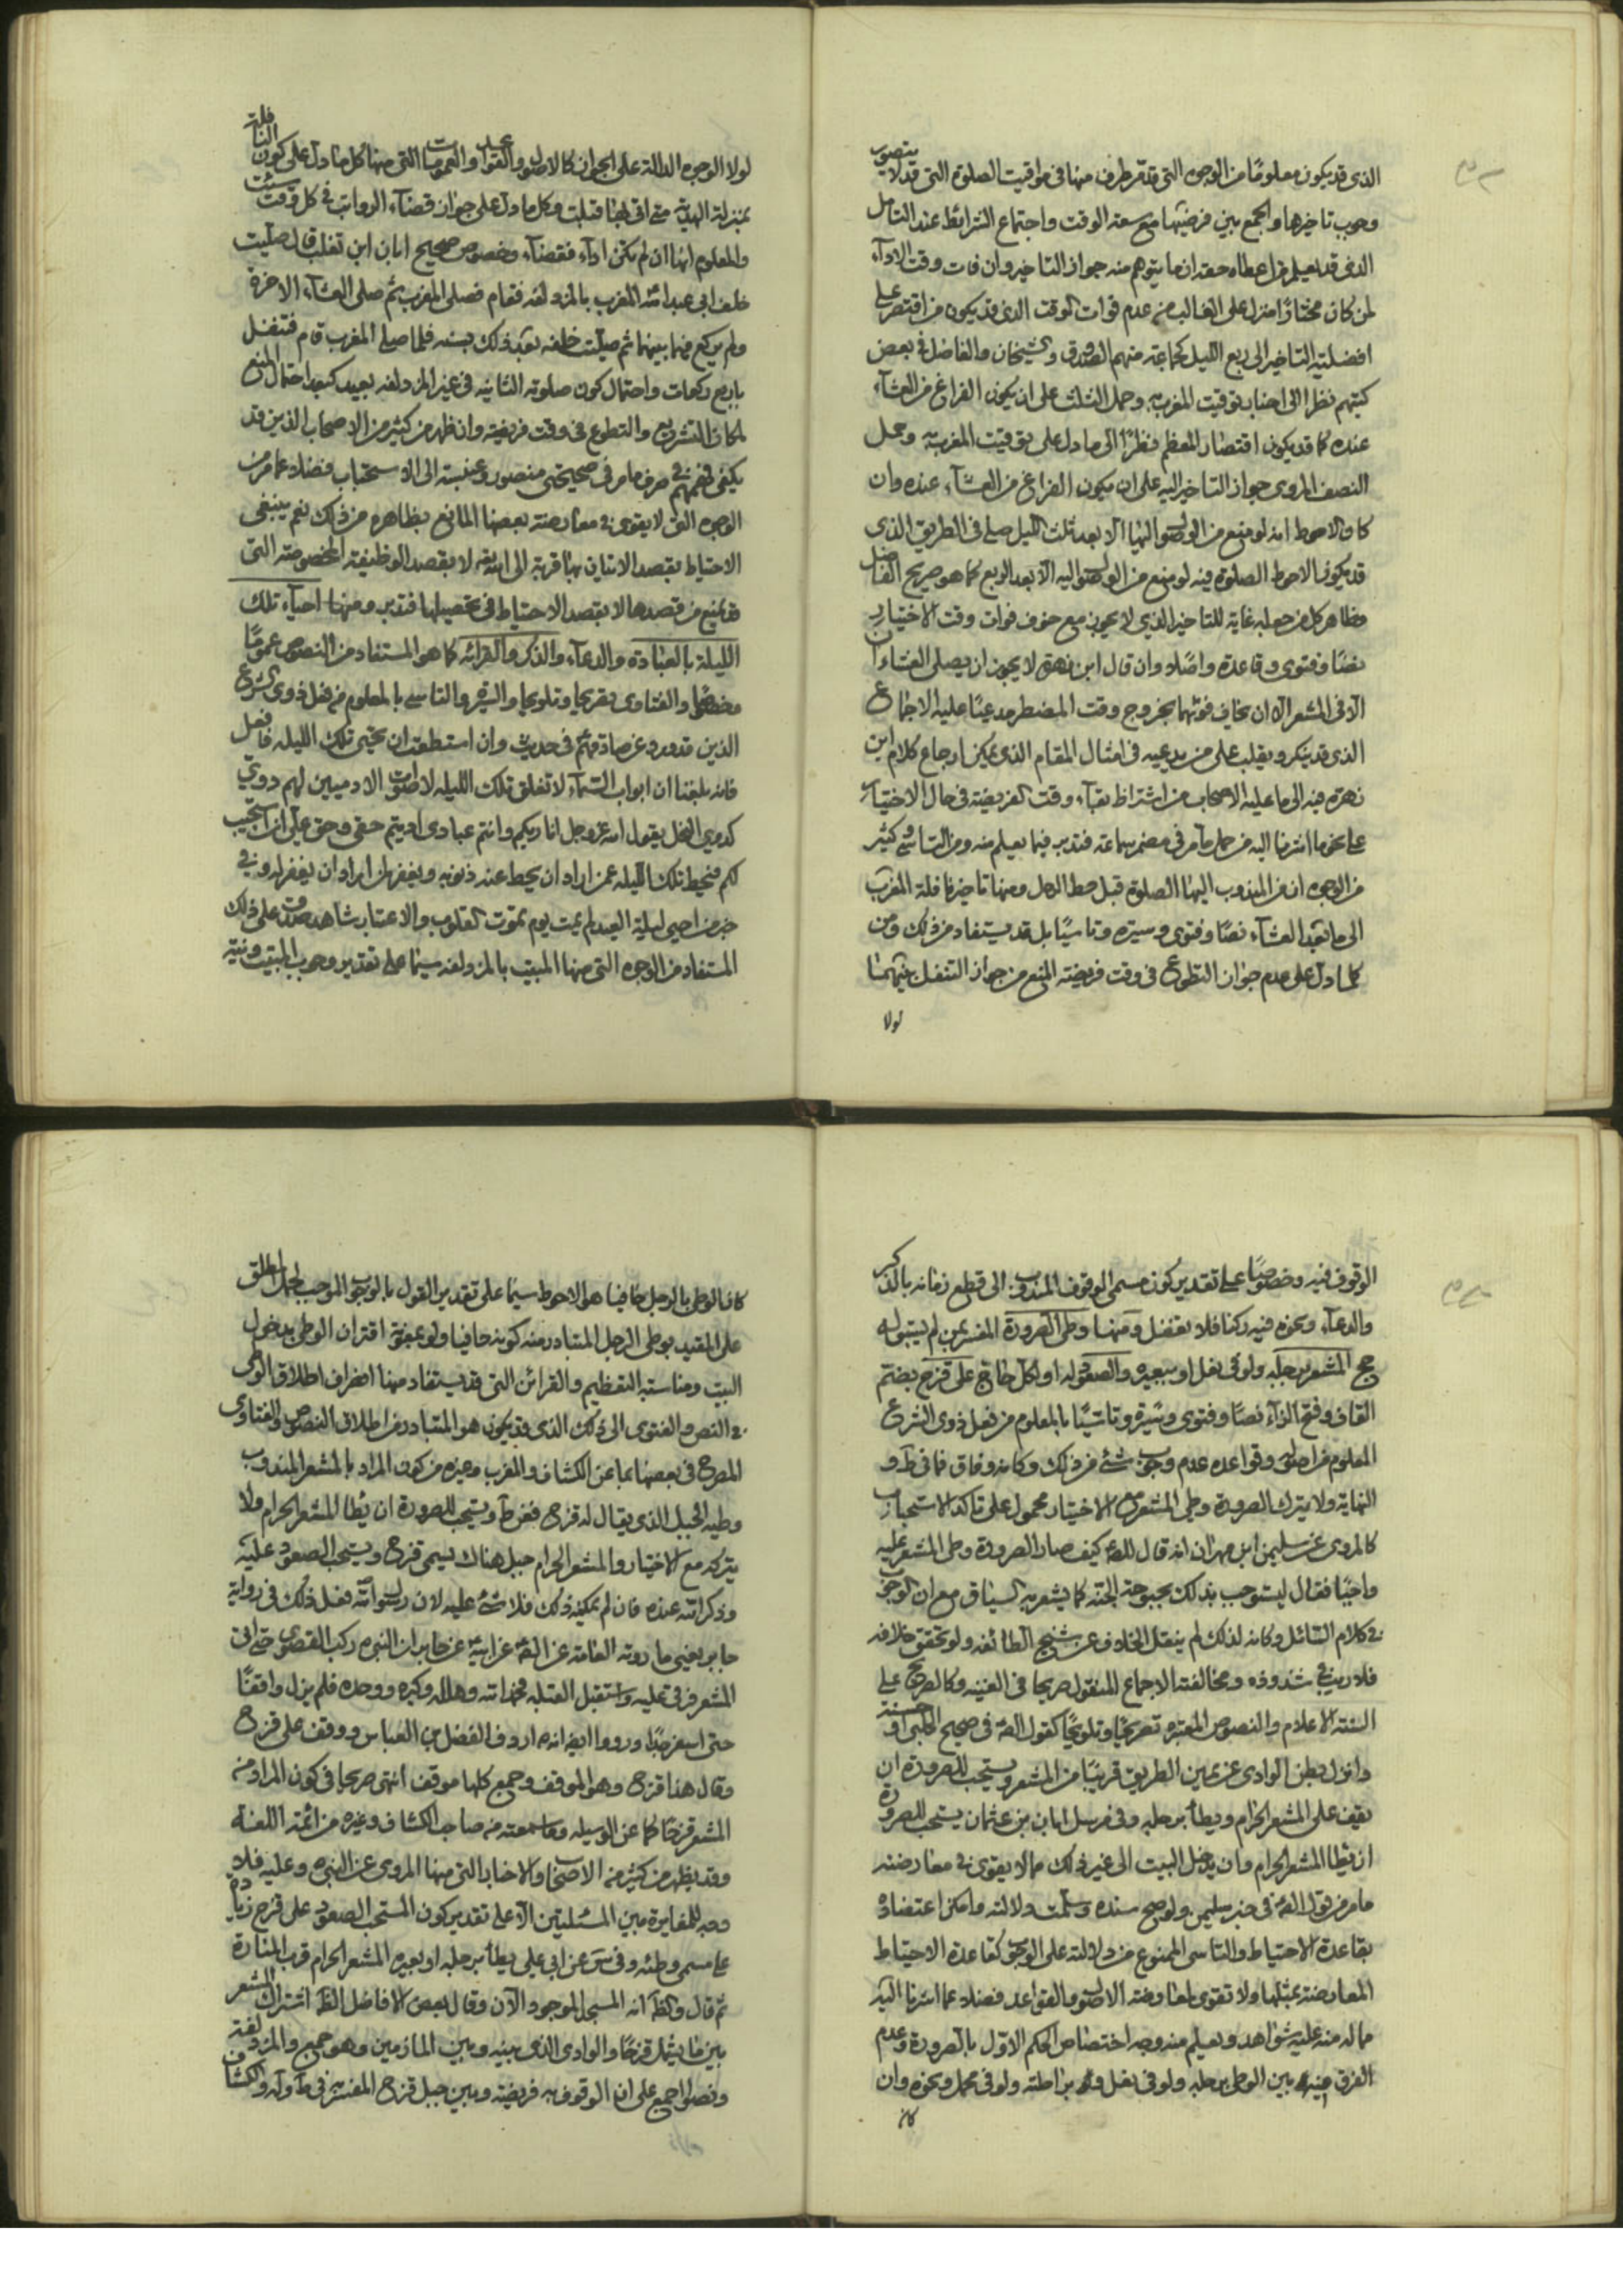 الذى قد يكون معلومًا من الوجوه التى قد مر طرف منها فى مواقيت الصلوة التى قد لا يتصور
وجوب تاخيرها والجمع بين فرضيتها مع سعة الوقت واجتماع الشرائط عند التامل
الذى قد يعلم من اعطاه حقه ان ما يتوهم منه جواز التاخير وان فات وقت الاداء
لمن كان مختارًا منزل على الغالب من عدم فوات الوقت الذى قد يكون من اقتصر على
افضلية التاخير الى ربع الليل كجماعة منهم الصدوق والشيخان والفاضل فى بعض
كتبهم نظرا الى اخبار توقيت المغرب به وحمل الثلث على ان يكون الفراغ من العشاء
عنده كما قد يكون اقتصار المعظم نظرًا الى ما دل على توقيت المغرب به وحمل
النصف المروى جواز التاخير اليه على ان يكون الفراغ من العشاء عنده وان
كان الاحوط انه لو منع من الوصول اليها الا بعد ثلث الليل صلى فى الطريق الذى
قد يكون الاحوط الصلوة فيه لو منع من الوصول اليه الا بعد الربع كما هو صريح الفاضل
وظاهر كل من جعله غاية للتاخير الذى لا يجوز مع خوف فوات وقت الاختيار
نصًا وفتوى وقاعدة واصلا وان قال ابن زهرة لا يجوز ان يصلى العشاءان
الا فى المشعر الا ان يخاف فوتهما بخروج وقت المضطر مدعيًا عليه الاجماع
الذى قد ينكر ويقلب على من يدعيه فى امثال المقام الذى يمكن ارجاع كلام ابن
زهرة فيه الى ما عليه الاصحاب من اشتراط بقاء وقت الفريضة فى حال الاختيار
على نحو ما اشرنا اليه من حمل ما مر فى مضمر سماعة فتدبر فيما يعلم منه ومن التاسى وكثير
من الوجوه ان من المندوب اليها الصلوة قبل حط الرحل ومنها تاخير نافلة المغرب
الى ما بعد العشاء نصًا وفتوى وسيرة وتاسيًا بل قد يستفاد من ذلك ومن
كلما دل على عدم جواز التطوع فى وقت فريضة المنع من جواز التنفل بينهما
لولا
لولا الوجوه الدالة على الجواز كالاصول والقواعد والعمومات التى منها كل ما دل على كون النافلة
بمنزلة الهدية متى اتى بها قبلت وكل ما دل على جواز قضاء الرواتب فى كل وقت شئت
والمعلوم انها ان لم يكن اداء فقضاء وخصوص صحيح ابان ابن تغلب قال صليت
خلف ابى عبد الله المغرب بالمزدلفه فقام فصلى المغرب ثم صلى العشاء الاخرة
ولم يركع فيما بينهما ثم صليت خلفه بعد ذلك بسنه فلما صلى المغرب قام فتنفل
باربع ركعات واحتمال كون صلوته الثانيه فى غير المزدلفه بعيد كبعد احتمال المنع
لمكان التشريع والتطوع فى وقت فريضة وان ظهر من كثير من الاصحاب الذين قد
يكفى فهمهم فى صرف ما مر فى صحيحتى منصور وعنبسة الى الاستحباب فضلا عما مر من
الوجوه التى لا يقوى فى معارضته بعضها المانع بظاهره من ذلك نعم ينبغى
الاحتياط بقصد الاتيان بها قربة الى الله لا بقصد الوظيفه المخصوصه التى
قد يمنع من قصدها لا بقصد الاحتياط فى تحصيلها فتدبر ومنها احياء تلك
الليلة بالعبادة والدعاء والذكر والقرائه كما هو المستفاد من النصوص عمومًا
وخصوصًا والفتاوى تصريحا وتلويحا والسيرة والتاسى بالمعلوم من فعل ذوى الشرع
الذين قد ورد عن صادقهم فى حديث وان استطعت ان تحيى تلك الليله فافعل
فانه بلغنا ان ابواب السماء لا تغلق تلك الليله لاصوات الادميين لهم دوى
كدوى النحل يقول الله عز وجل انا ربكم وانتم عبادى اديتم حقى وحق على ان استجيب
لكم فيحط تلك الليله عمن اراد ان يحط عنه ذنوبه ويغفر لمن اراد ان يغفر له وفى
خبر من احيى ليلة العيد لم يمت يوم تموت القلوب والاعتبار شاهد صدق على ذلك
المستفاد من الوجوه التى منها المبيت بالمزدلفه سيما على تقدير وجوب المبيت ونية
الوقوف فيه وخصوصًا على تقدير كون مسمى الوقوف المندوب الى قطع زمانه بالذكر
والدعاء ونحوه فيه ركنا فلا تغفل ومنها وطى الصرورة المفسر بمن لم يسبق له
حج المشعر برجله ولو فى نعل او ببعيره والصعود له او لكل حاج على قزح بضم
القاف وفتح الزاء نصًا وفتوى وسيرة وتاسيًا بالمعلوم من فعل ذوى الشرع
المعلوم من اصوله وقواعده عدم وجوب شئ من ذلك وكانه وفاق فما فى ط و
النهاية ولا يترك الصرورة وطى المشعر مع الاختيار محمول على تاكد الاستحباب
كالمروى عن سليمن ابن مهران انه قال للص كيف صار الصرورة وطى المشعر عليه
واجبًا فقال ليستوجب بذلك بحبوحة الجنة كما يشعر به السياق مع ان الوجوب
فى كلام السائل وكانه لذلك لم ينقل الخلاف عن شيخ الطائفه ولو تحقق خلافه
فلا ريب فى شذوذه ومخالفته الاجماع المنقول صريحا فى الغنيه وكالصريح على
السنة الاعلام والنصوص المعتبرة تصريحًا وتلويحًا كقول الص فى صحيح الحلبى او حسنه
وانزل بطن الوادى عن يمين الطريق قريبًا من المشعر ويستحب للصرورة ان
يقف على المشعر الحرام ويطأ برجله وفى مرسل ابان بن عثمان يستحب للصرورة
ان يطا المشعر الحرام وان يدخل البيت الى غير ذلك مما لا يقوى فى معارضته
ما مر من قول الص فى خبر سليمن ولو صح سنده وسلمت دلالته وامكن اعتضاده
بقاعدة الاحتياط والتاسى الممنوع من دلالته على الوجوب كقاعدة الاحتياط
المعارضة بمثلها ولا تقوى لمعارضه الاصول والقواعد فضلا عما اشرنا اليه
مما له منه عليه شواهد ويعلم منه وجه اختصاص الحكم الاول بالصرورة وعدم
الفرق فيه بين الوطى برجله ولو فى نعل و براحلته ولو فى محمل ونحوه وان
كان
كان الوطى بالرجل حافيا هو الاحوط سيما على تقدير القول بالوجوب الموجب لحمل المطلق
على المقيد بوطى الرجل المتبادر منه كونه حافيا ولو بمعونة اقتران الوطى بدخول
البيت ومناسبة التعظيم والقرائن التى قد يستفاد منها انصراف اطلاق الوطى
فى النص والفتوى الى ذلك الذى قد يكون هو المتبادر من اطلاق النصوص والفتاوى
المصرح فى بعضها بما عن الكشاف والمغرب وغيره من كون المراد بالمشعر المندوب
وطيه الجبل الذى يقال له قزح فعن ط ويستحب للصرورة ان يطا المشعر الحرام ولا
يتركه مع الاختيار والمشعر الحرام جبل هناك يسمى قزح ويستحب الصعود عليه
وذكر الله عنده فان لم يمكنه ذلك فلا شئ عليه لان رسول الله فعل ذلك فى رواية
جابر يعنى ما روته العامة عن الص عن ابيه عن جابر ان النبى ركب القصوى حتى اتى
المشعر فرقى عليه واستقبل القبلة فحمد الله وهلله وكبره ووحده فلم يزل واقفًا
حتى اسفر جدًا ورووا ايضا انه اردف الفضل بن العباس ووقف على قزح
وقال هذا قزح وهو الموقف وجمع كلها موقف انتهى صريحا فى كون المراد من
المشعر قزحًا كما عن الوسيله وما سمعته من صاحب الكشاف وغيره من ائمة اللغة
وقد يظهر من كثير من الاصحاب والاخبار التى منها المروى عن النبى وعليه فلا
وجه للمغايرة بين المسئلتين الا على تقدير كون المستحب الصعود على قزح زيادة
على مسمى وطئه وفى س عن ابى على يطأ برجله او بعيره المشعر الحرام قرب المنارة
ثم قال والظ انه المسجد الموجود الآن وقال بعض الافاضل الظ اشتراك المشعر
بين ما يشمل قزحًا والوادى الذى بينه وبين المازمين وهو جمع والمزدلفة
ونصوا جمع على ان الوقوف به فريضة وبين جبل قزح المفسر به فى والكشاف